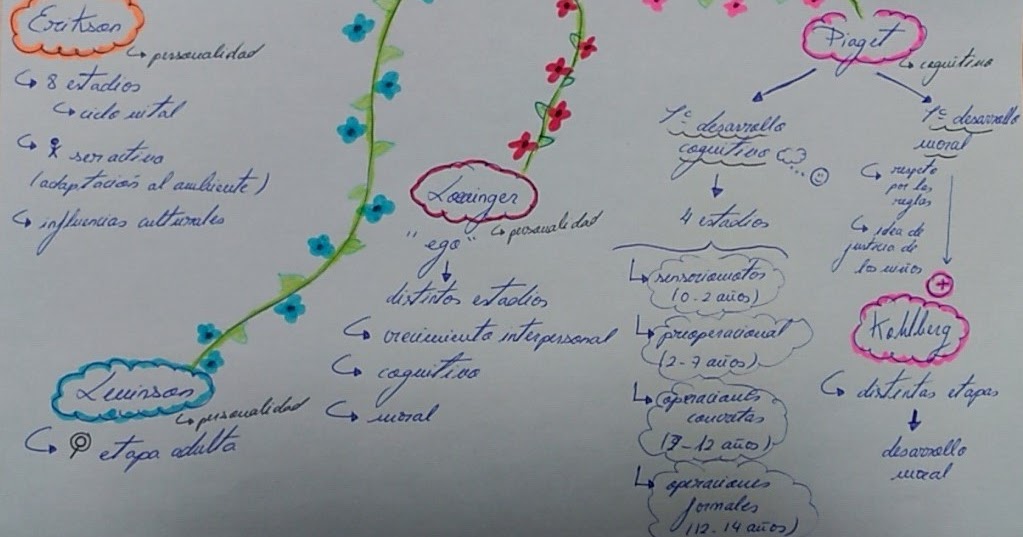 Erikson
↳ personalidad
↳ 8 estadios
↳ ciclo vital
↳ ser activo
(adaptación al ambiente)
↳ influencias culturales
Levinson
↳ personalidad
↳ etapa adulta
Loevinger
↳ personalidad
"ego"
distintos estadios
↳ crecimiento interpersonal
↳ cognitivo
↳ moral
Piaget
↳ cognitivo
desarrollo
cognitivo
4 estadios
sensoriomotos
(0-2 años)
preoperacional
(2-7 años)
operaciones
concretas
(7-12 años)
operaciones
formales
(12-14 años)
desarrollo
moral
↳ respeto
por las
reglas
↳ idea de
justicia de
los niños
+
Kohlberg
↳ distintas etapas
desarrollo
moral